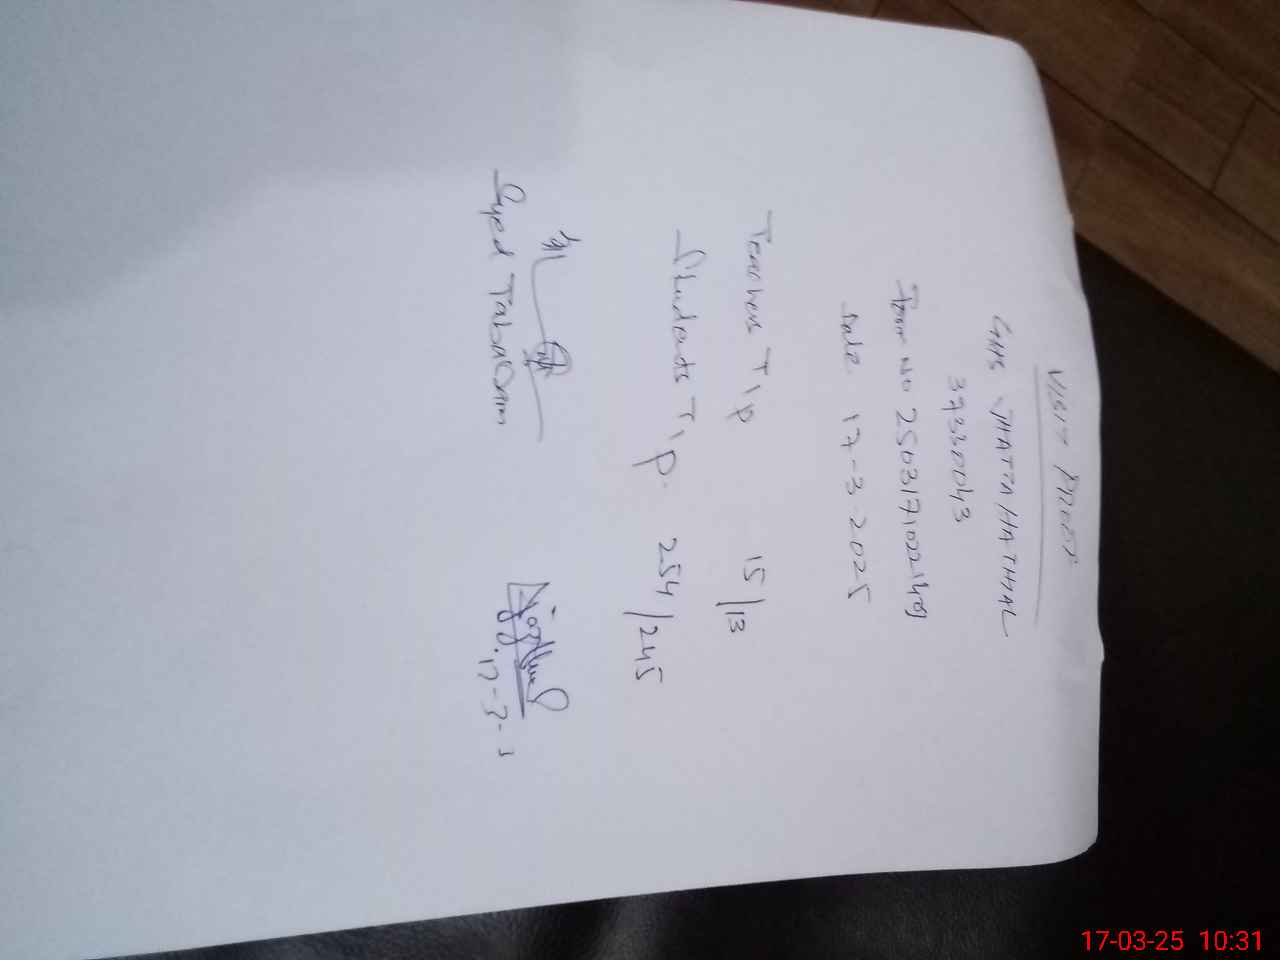 Visit Proof
GHS JHATTA HATHIAL
37330043
Tour No 25031710221409
Date 17-3-2025
Teachers T/p 15/13
Students T/p. 254/245
Syed Tab
17-3-
17-03-25 10:31